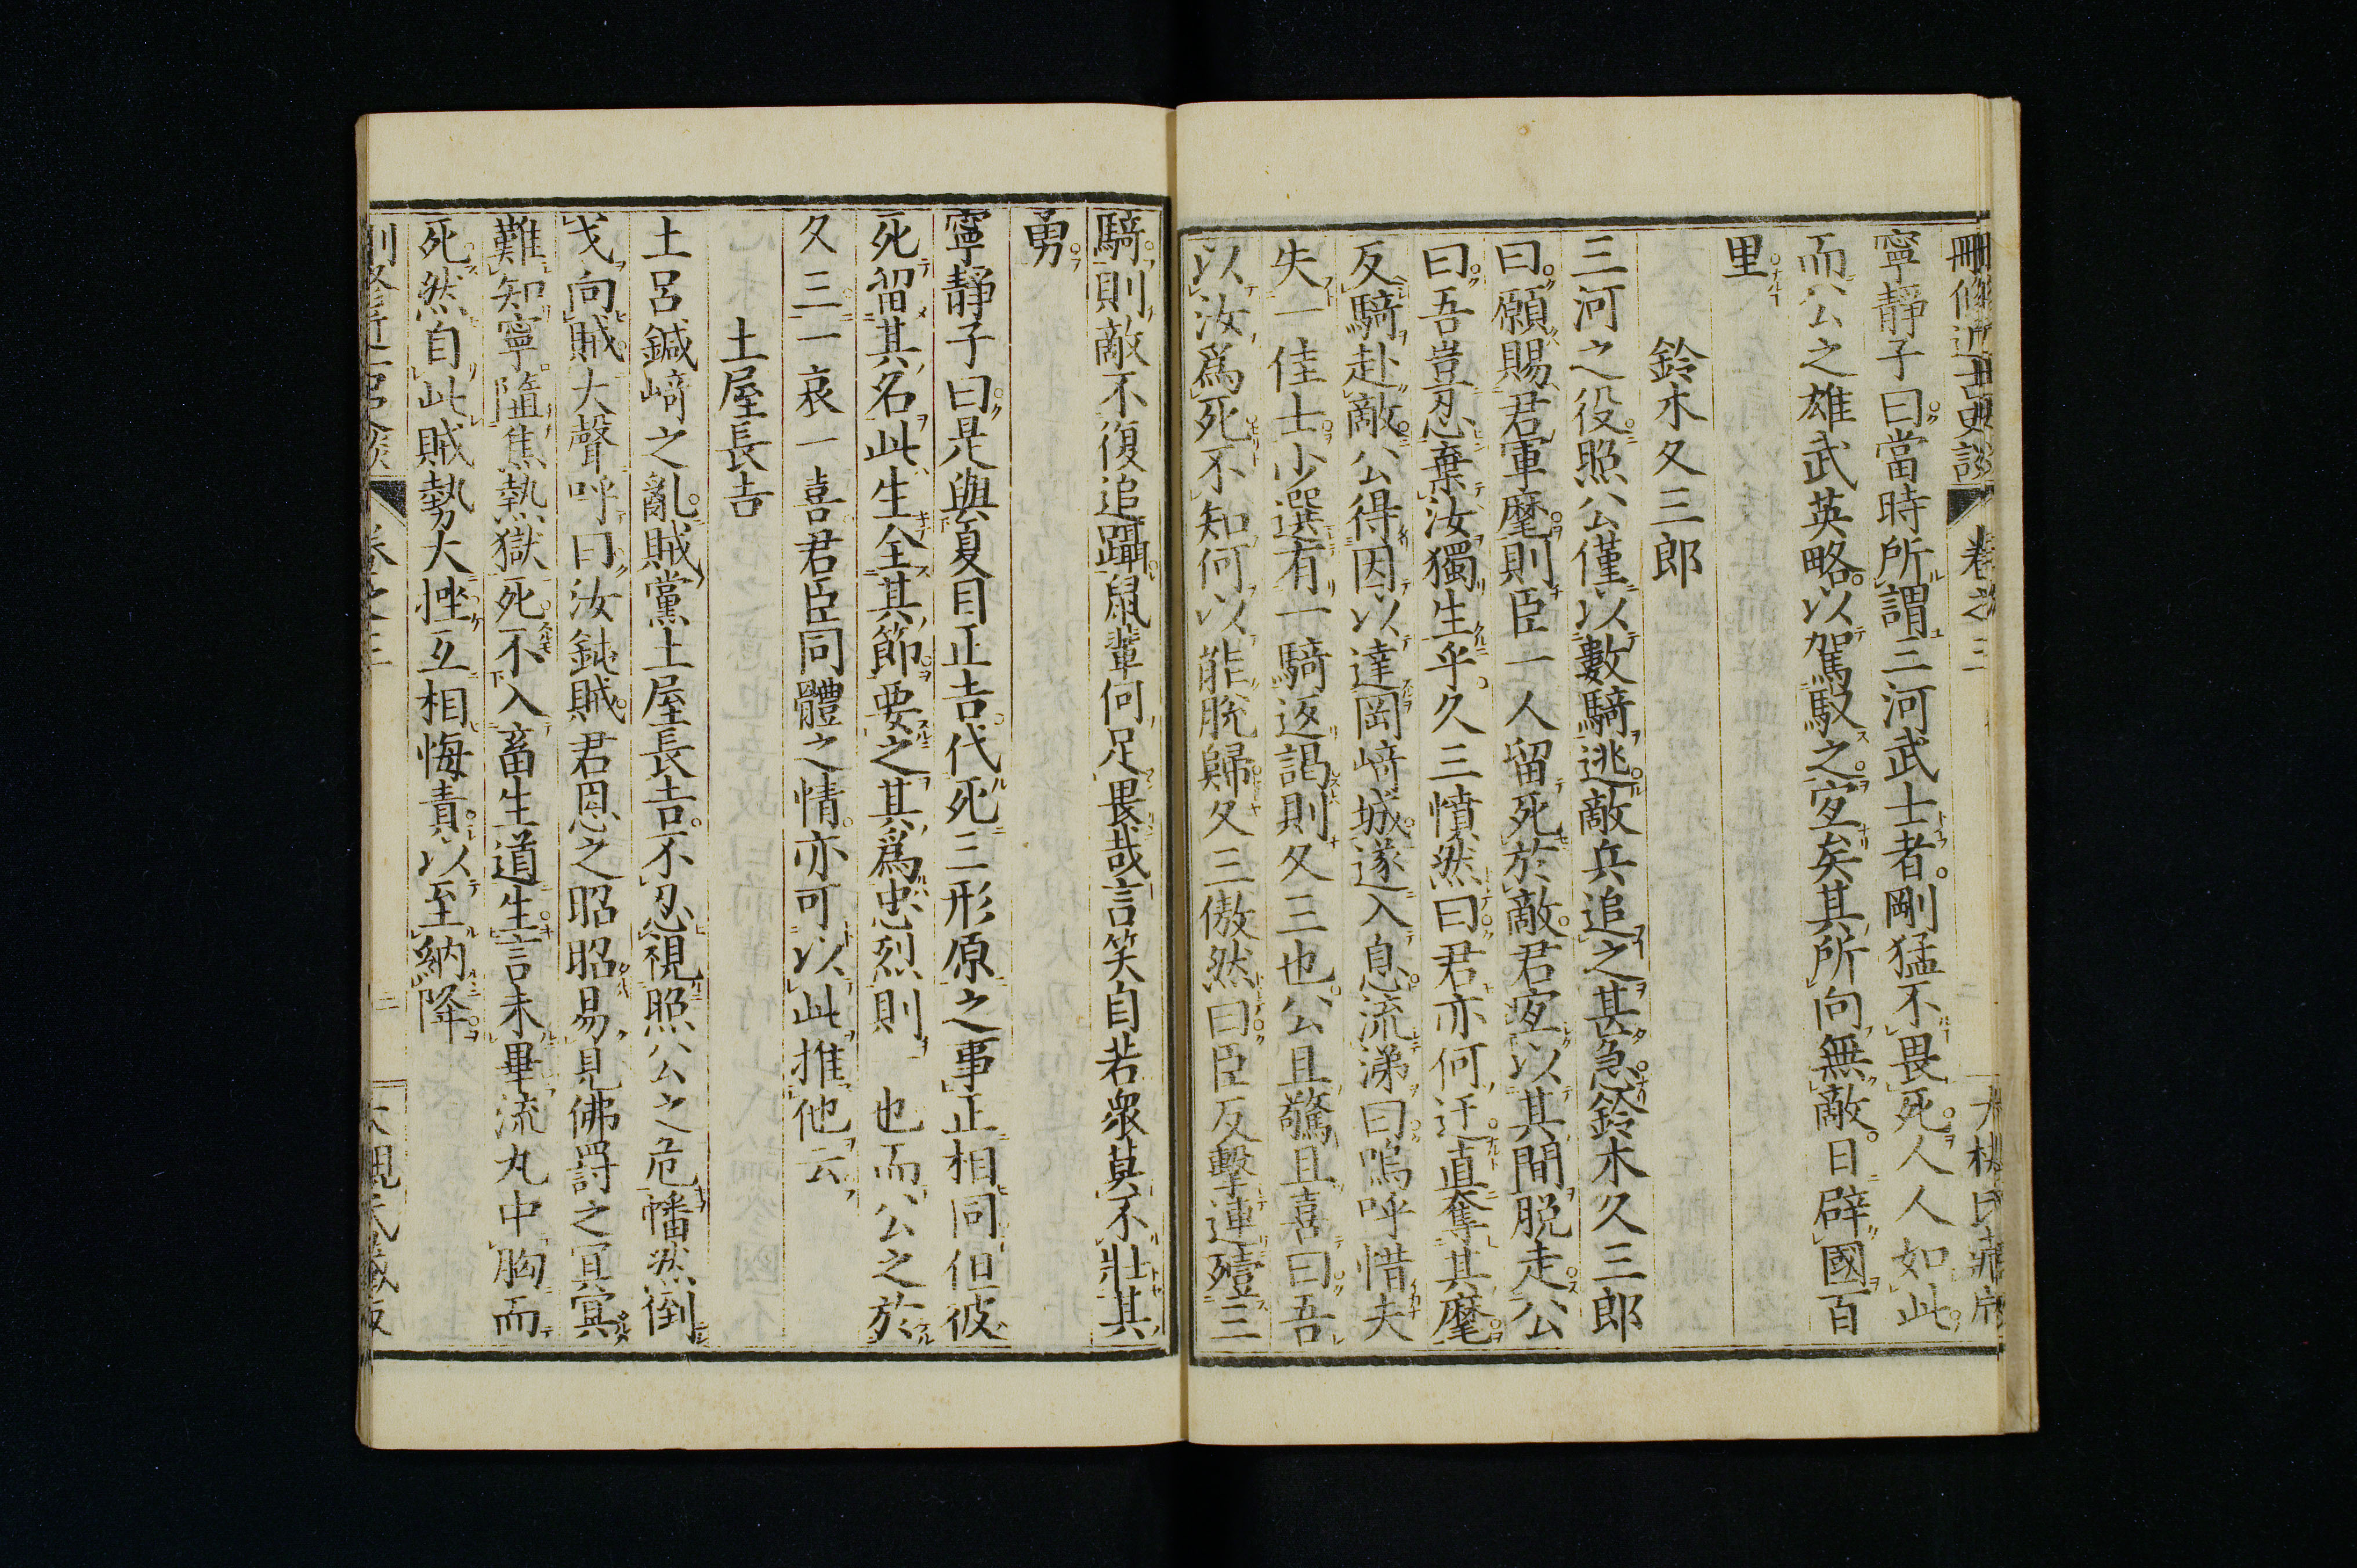 刪修近古史談 卷之三 大槻氏藏版
寧靜子曰當時所謂三河武士者剛猛不畏死人人如此
而公之雄武英略以駕馭之宐矣其所向無敵日辟國百
里
鈴木久三郎
三河之役照公僅以數騎逃敵兵追之甚急鈴木久三郎
曰願賜君軍麾則臣一人留死於敵君宐以其間脱走公
曰吾豈忍棄汝獨生乎久三憤然曰君亦何迂直奪其麾
反騎赴敵公得因以達岡﨑城遂入息流涕曰嗚呼惜夫
失一佳士少選有一騎返謁則久三也公且驚且喜曰吾
以汝爲死不知何以能脫歸久三傲然曰臣反擊連殪三
騎則敵不復追躡鼠輩何足畏哉言笑自若衆莫不壯其
勇
寧靜子曰是與夏目正吉代死三形原之事正相同但彼
死留其名此生全其節要之其爲忠烈則 也而公之於
久三一哀一喜君臣同體之情亦可以此推他云
土屋長吉
土呂鍼﨑之亂賊黨土屋長吉不忍視照公之危幡然倒
戈向賊大聲呼曰汝鈍賊君恩之昭昭易見佛罸之冥冥
難知寧墮焦熱獄死不入畜生道生言未畢流丸中胸而
死然自此賊勢大挫互相悔責以至納降
刪修近古史談 卷之三 二 大槻氏藏版